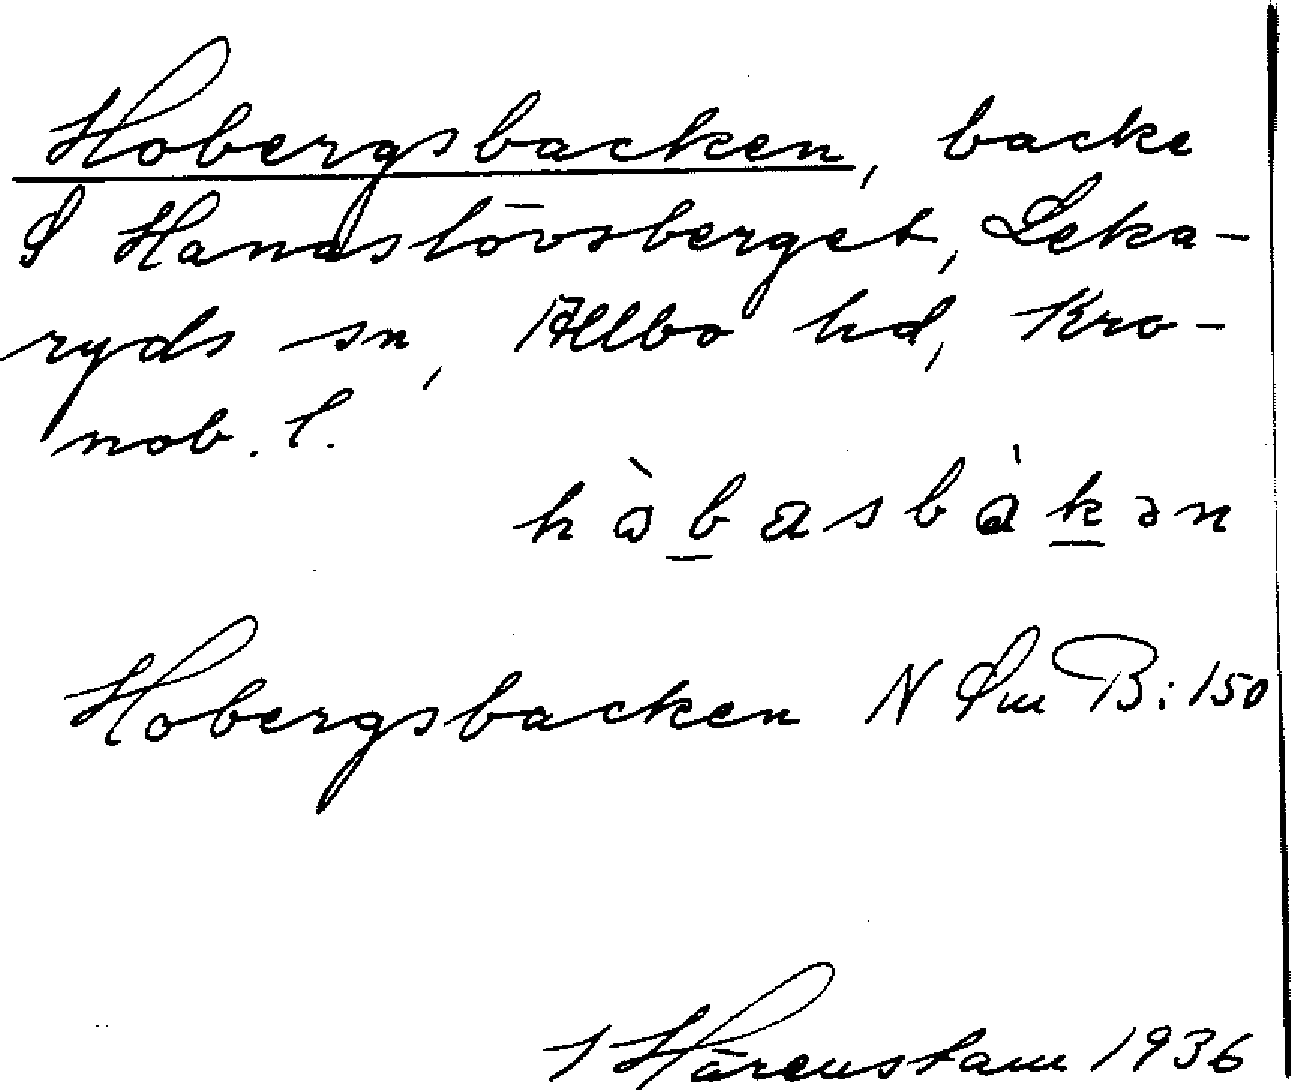 Hobergsbacken, backe
S Hanaslövsberget, Leka-
ryds sn, Allbo hd, Kro-
nob. l.
hòb̲asbàk̲ən
Hobergsbacken N Sm B: 150
J Hårenstam 1936